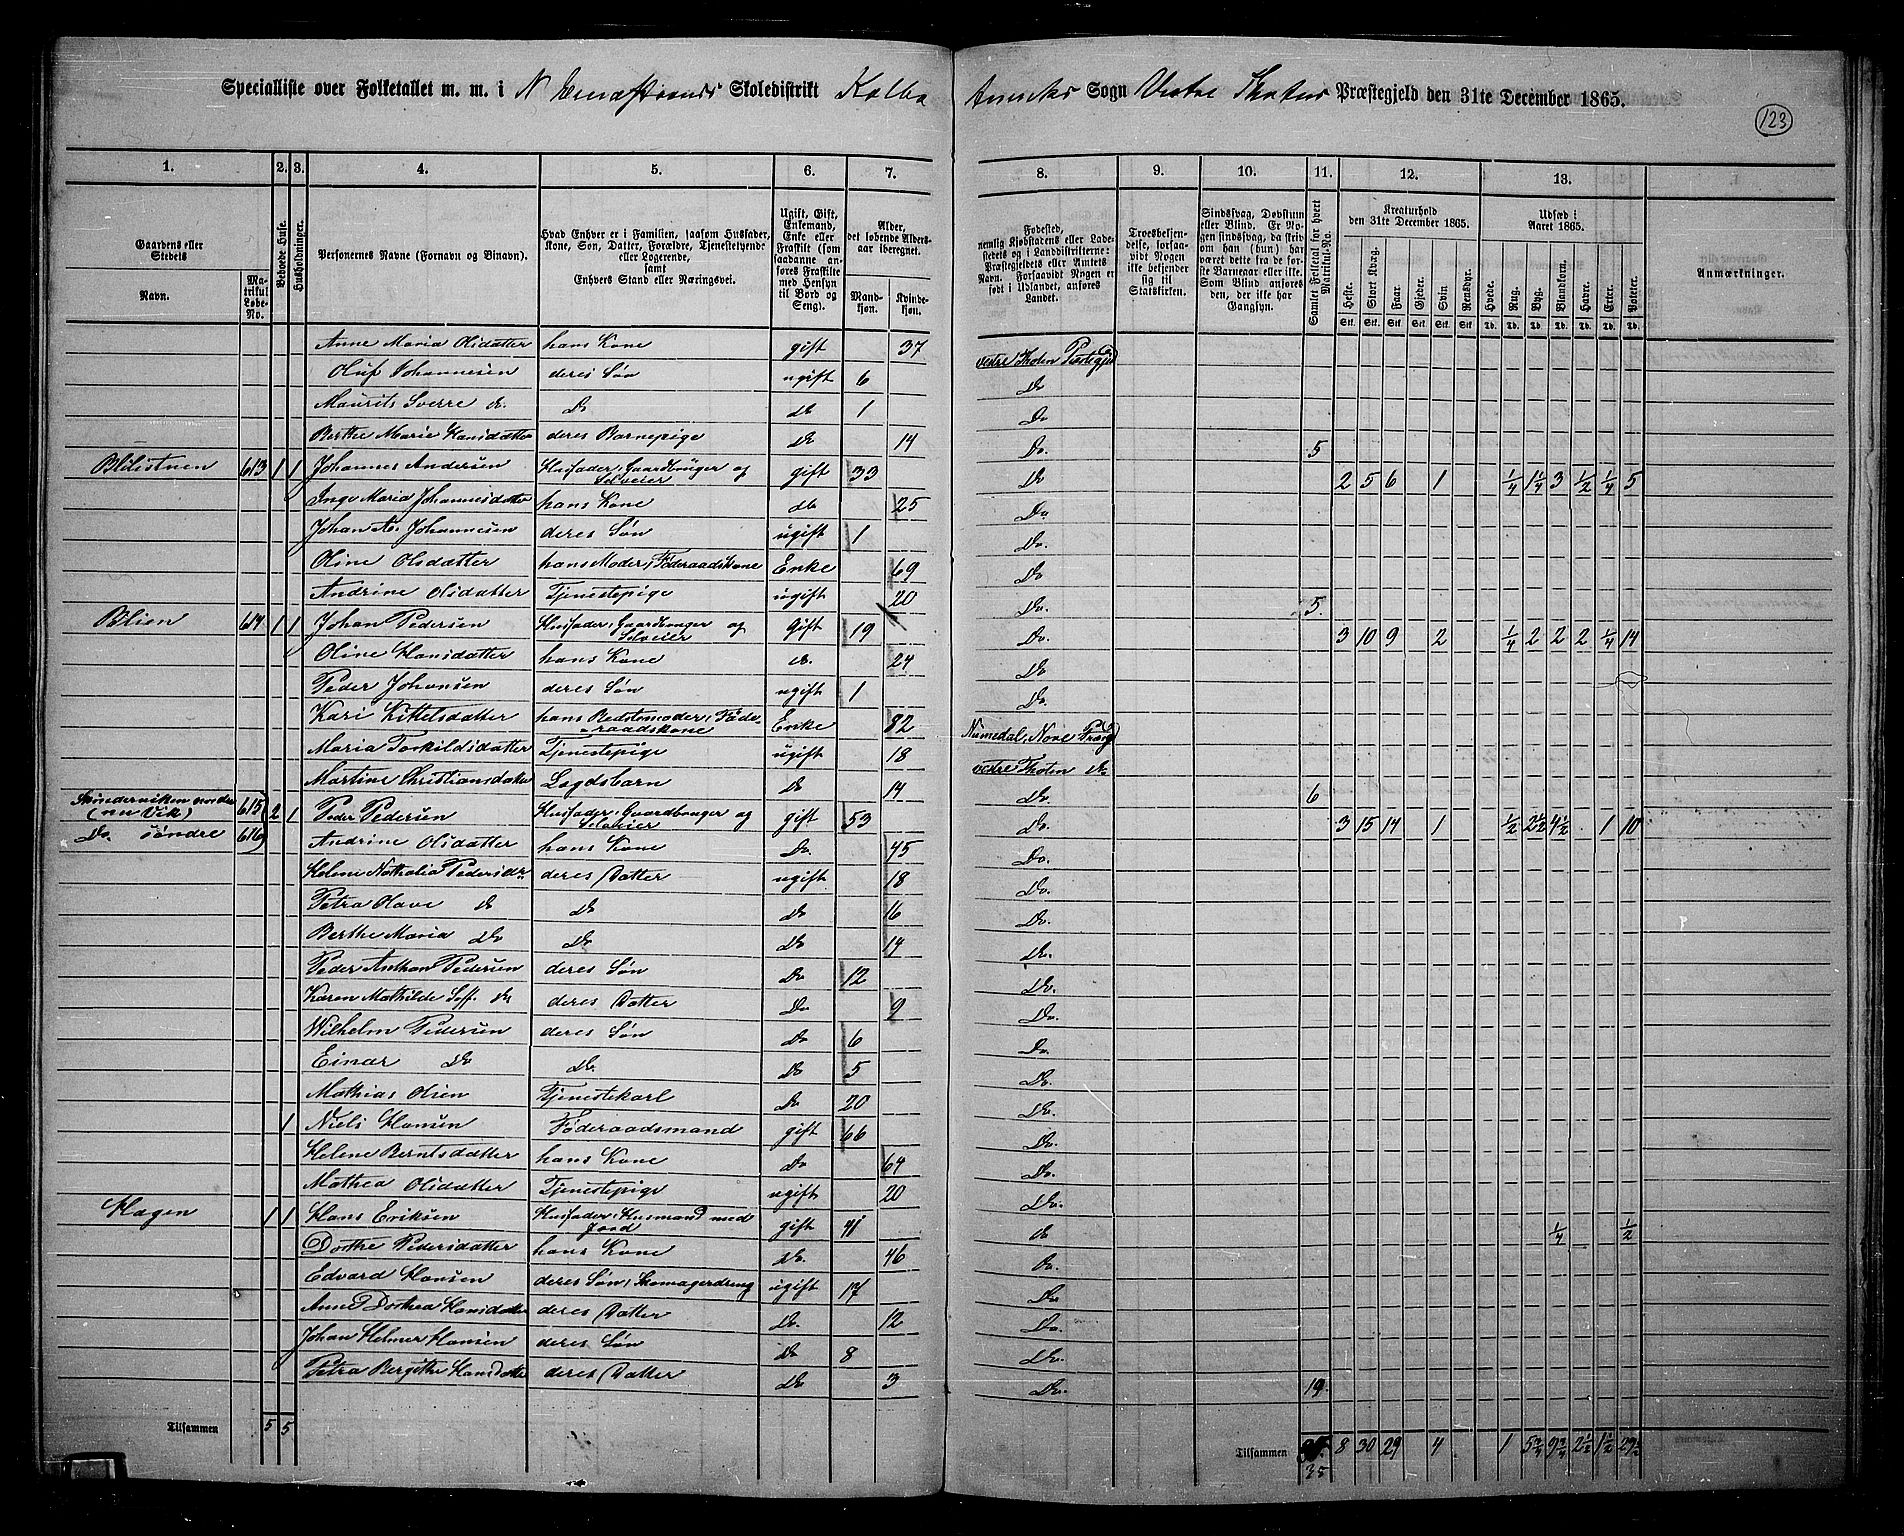 Specialliste over Folketallet m. m. i N. Skoledistrikt Kolbo Annecks Sogn Vestre Thotens Præstegjeld den 31te December 1865.
123
1. 2. 3. 4. 5. 6. 7. 8. 9. 10. 11. 12. 13.
Gaardens eller Stedets
Navn.
Matrikul Løbe-No.
Beboede Huse.
Husholdninger.
Personernes Navne (Fornavn og Binavn).
Hvad Enhver er i Familien, saasom Husfader, Kone, Søn, Datter, Forældre, Tjenestetyende eller Logerende, samt Enhvers Stand eller Næringsvei.
Ugift, Gift, Enkemand, Enke eller Fraskilt (som saadanne anføres Fraskilte med Hensyn til Bord og Seng).
Alder, det løbende Aldersaar iberegnet.
Mandkjøn. Kvindekjøn.
Fødested, nemlig Kjøbstadens eller Ladestedets og i Landdistrikterne: Præstegjeldets eller Amtets Navn. Forsaavidt Nogen er født i Udlandet, anføres Landet.
Troesbekjendelse, forsaavidt Nogen ikke bekjender sig til Statskirken.
Sindssvag, Døvstum eller Blind. Er Nogen sindssvag, da skriv om han (hun) har været dette fra første Barneaar eller ikke. Som Blind anføres den, der ikke har Gangsyn.
Samlet Folketal for hvert Matrikul-No.
Kreaturhold den 31te December 1865.
Heste. Stort Kvæg. Faar. Gjeder. Svin. Rensdyr.
Udsæd i Aaret 1865.
Hvede. Rug. Byg. Blandkorn. Havre. Erter. Poteter.
Anmærkninger.
Anne Maria Olsdatter hans Kone gift 37 vestre Thoten Præstegjd
Oluf Johannesen deres Søn ugift 6 Do
Maurits Sverre do. Do do 1 Do.
Berthe Marie Hansdatter deres Barnepige do 14 Do. 5
Blilistuen 613 1 1 Johannes Andersen Husfader, Gaardbruger og Selveier gift 33 Do 2 5 6 1 1/4 1 1/4 3 1/2 1/4 5
Inge Maria Johannesdatter hans Kone do 25 Do
Johan A. Johannesen deres Søn ugift 1 Do.
Oline Olsdatter hans Moder, Føderaadskone Enke 69 Do
Andrine Olsdatter Tjenestepige ugift 20 Do. 5
Blien 614 1 1 Johan Pedersen Husfader, Gaardbruger og Selveier Gift 19 Do. 3 10 9 2 1/4 2 2 2 1/4 14
Oline Hansdatter hans Kone do. 24 Do
Peder Johansen deres Søn ugift 1 Do.
Kari Kittelsdatter hans Bedstemoder, Føderaadskone Enke 82 Numedal, Nore Præstg
Maria Torkildsdatter Tjenestepige ugift 18 vestre Thoten do
Martine Christiansdatter Legdsbarn do 14 Do. 6
nordre (nu Vik) 615 2 1 Peder Pedersen Husfader, Gaardbruger og Selveier gift 53 Do. 3 15 14 1 1/2 2 1/2 4 1/2 1 10
Do. søndre 616 Andrine Olsdatter hans Kone Do. 45 Do.
Helene Nathalia Pedersdr deres Datter ugift 18 Do.
Petra Olave do do do 16 Do.
Berthe Maria Do Do Do 14 Do.
Peder Anthon Pedersen deres Søn Do 12 Do.
Karen Mathilde Soff. do deres Datter Do 9 Do.
Wilhelm Pedersen deres Søn Do 6 Do.
Einar Do Do. Do 5 Do.
Mathias Olsen Tjenestekarl Do 20 Do.
1 Niels Hansen Føderaadsmand gift 66 Do.
Helene Berntsdatter hans Kone Do 64 Do.
Mathea Olsdatter Tjenestepige ugift 20 Do.
Hagen 1 1 Hans Eriksen Husfader, Husmand med Jord gift 41 do 1/4 1/2
Dorthe Pedersdatter hans Kone Do. 46 Do.
Edvard Hansen deres Søn, Skomagerdreng ugift 17 Do
Anne Dorthea Hansdatter deres Datter Do. 12 Do.
Johan Helmer Hansen deres Søn Do 8 Do.
Petra Bergithe Hansdatter deres Datter Do 3 Do. 19
Tilsammen 5 5 Tilsammen 35 8 30 29 4 1 5 3/4 9 3/4 2 1/2 1 1/2 29 1/2